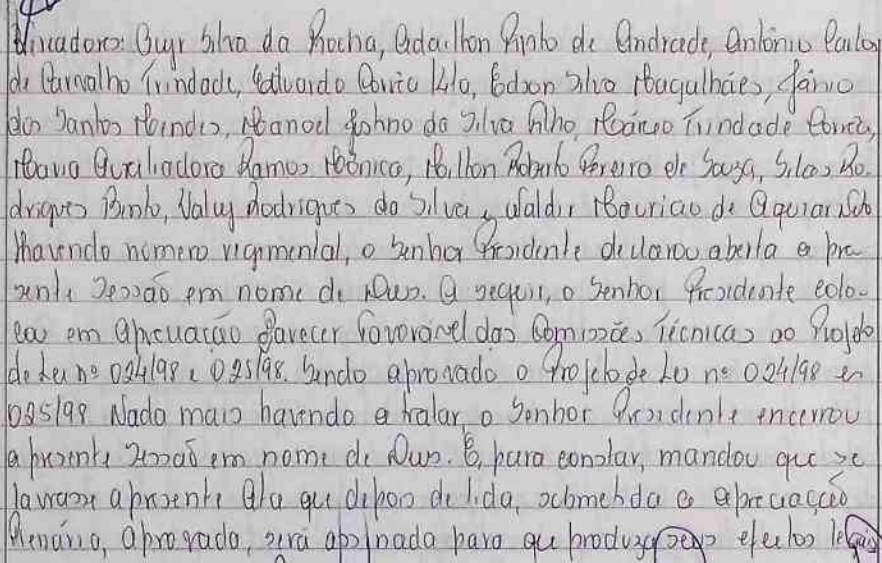 Vereadores: Guyr Silva da Rocha, Adailton Pinto de Andrade, Antônio Carlos
de Carvalho Trindade, Eduardo Corrêa Kito, Edson Silva Magalhães, Jânio
dos Santos Mendes, Manoel Johno da Silva Filho, Márcio Trindade Corrêa,
Maria Auxiliadora Ramos Mônica, Milton Roberto Pereira de Souza, Silas Ro-
drigues Bento, Valcy Rodrigues da Silva e Waldir Mauricio de Aguiar Neto
Havendo número regimental, o Senhor Presidente declarou aberta a pre
sente Sessão em nome de Deus. A seguir, o Senhor Presidente colo-
cou em apreciação Parecer Favorável das Comissões Técnicas ao Projeto
de Lei nº 024/98 e 025/98. Sendo aprovado o Projeto de Lei nº 024/98 e
025/98 Nada mais havendo a tratar, o Senhor Presidente encerrou
a presente Sessão em nome de Deus. E, para constar, mandou que se
lavrasse a presente Ata que depois de lida, submetida a apreciação
Plenária, aprovada, será assinada para que produza seus efeitos legais